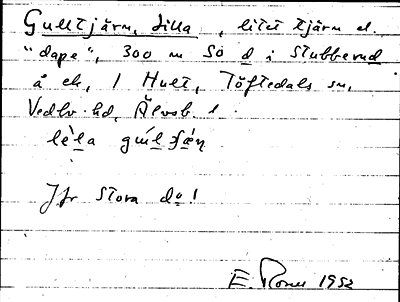 Gulltjärn, Lilla, litet tjärn el.
"dape", 300 m SO d i Stubberud
å ek, 1 Hult, Töftedals sn,
Vedbo hd, Älvsb. l.
Jfr Stora do!
E. 1952